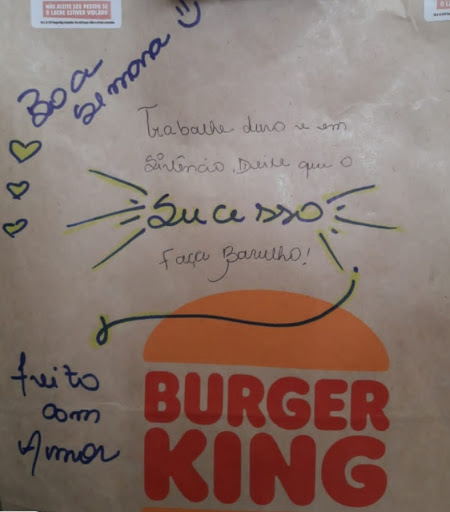 NÃO ACEITE SEU PEDIDO SE
O LACRE ESTIVER VIOLADO
Boa
Semana
Trabalhe duro e em
Silêncio. Deixe que o
Sucesso
Faça Barulho!
feito
com
Amor
BURGER
KING